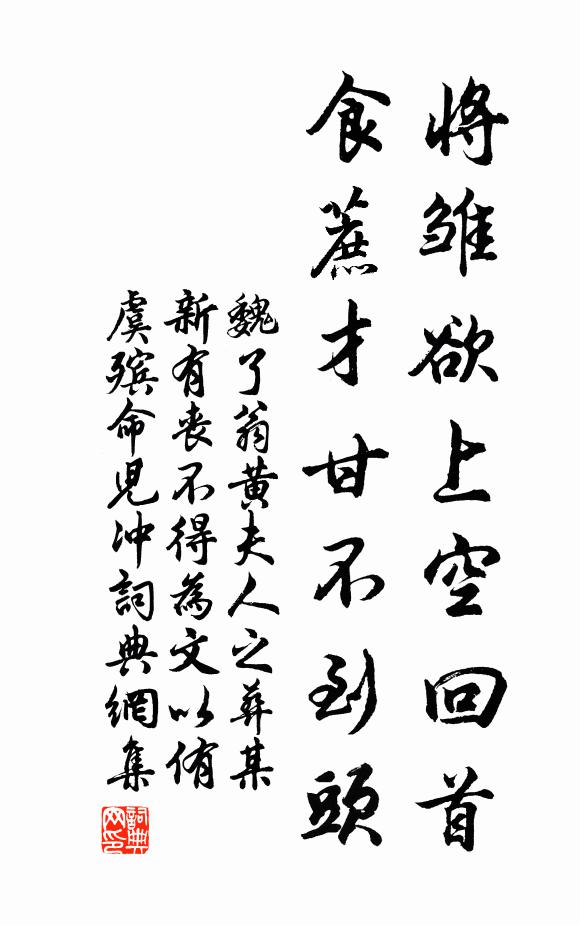 將雏欲上空回首
食蔗才甘不到頭
魏了翁黄夫人之葬某
新有丧不得為文以侑
虞殡命児冲詞典網集
詞典
网印